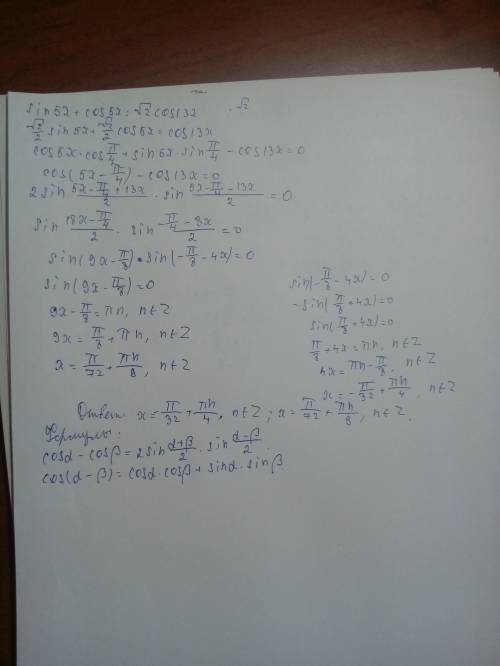 sin5x + cos5x = √2 cos13x   : √2
√2/2 sin5x + √2/2 cos5x = cos13x
cos5x · cos π/4 + sin5x · sin π/4 - cos13x = 0
cos(5x - π/4) - cos13x = 0
2sin (5x - π/4 + 13x)/2 · sin (5x - π/4 - 13x)/2 = 0
sin (18x - π/4)/2 · sin (-π/4 - 8x)/2 = 0
sin(9x - π/8) · sin(-π/8 - 4x) = 0
sin(9x - π/8) = 0
9x - π/8 = πn, n∈Z
9x = π/8 + πn, n∈Z
x = π/72 + πn/8, n∈Z
sin(-π/8 - 4x) = 0
-sin(π/8 + 4x) = 0
sin(π/8 + 4x) = 0
π/8 + 4x = πn, n∈Z
4x = πn - π/8, n∈Z
x = -π/32 + πn/4, n∈Z
Ответ: x = π/32 + πn/4, n∈Z; x = π/72 + πn/8, n∈Z.
Формулы:
cosα - cosβ = 2sin (α+β)/2 · sin (α-β)/2
cos(α - β) = cosα · cosβ + sinα · sinβ